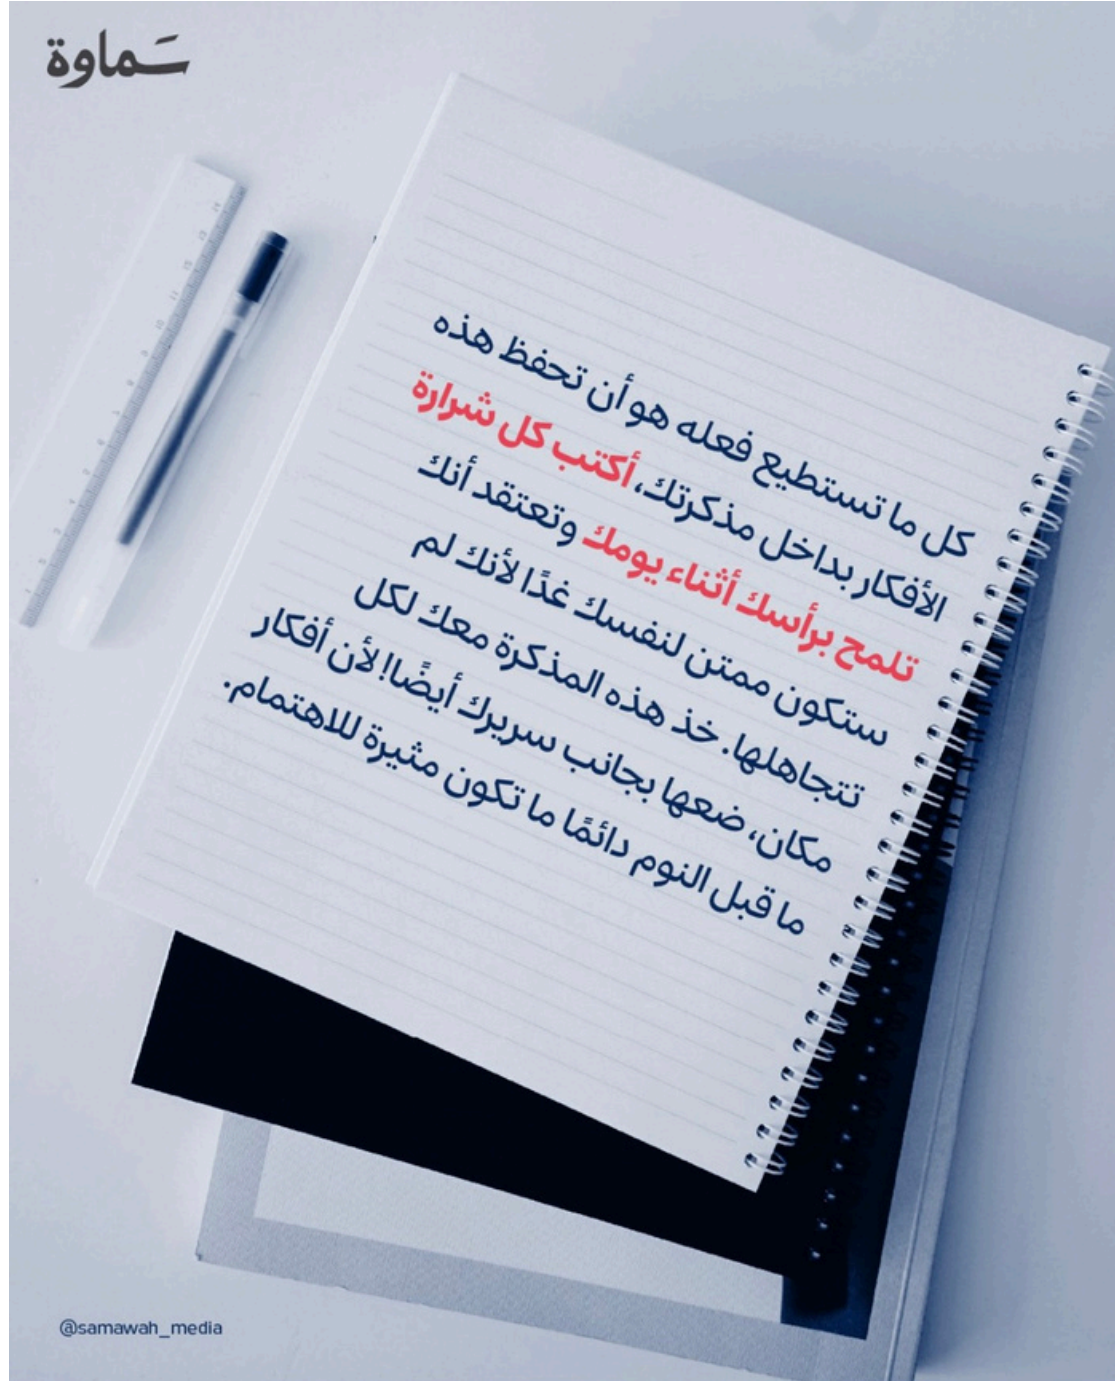 سَماوة
كل ما تستطيع فعله هو أن تحفظ هذه
الأفكار بداخل مذكرتك، أكتب كل شرارة
تلمح برأسك أثناء يومك وتعتقد أنك
ستكون ممتن لنفسك غدًا لأنك لم
تتجاهلها. خذ هذه المذكرة معك لكل
مكان، ضعها بجانب سريرك أيضًا! لأن أفكار
ما قبل النوم دائمًا ما تكون مثيرة للاهتمام.
@samawah_media